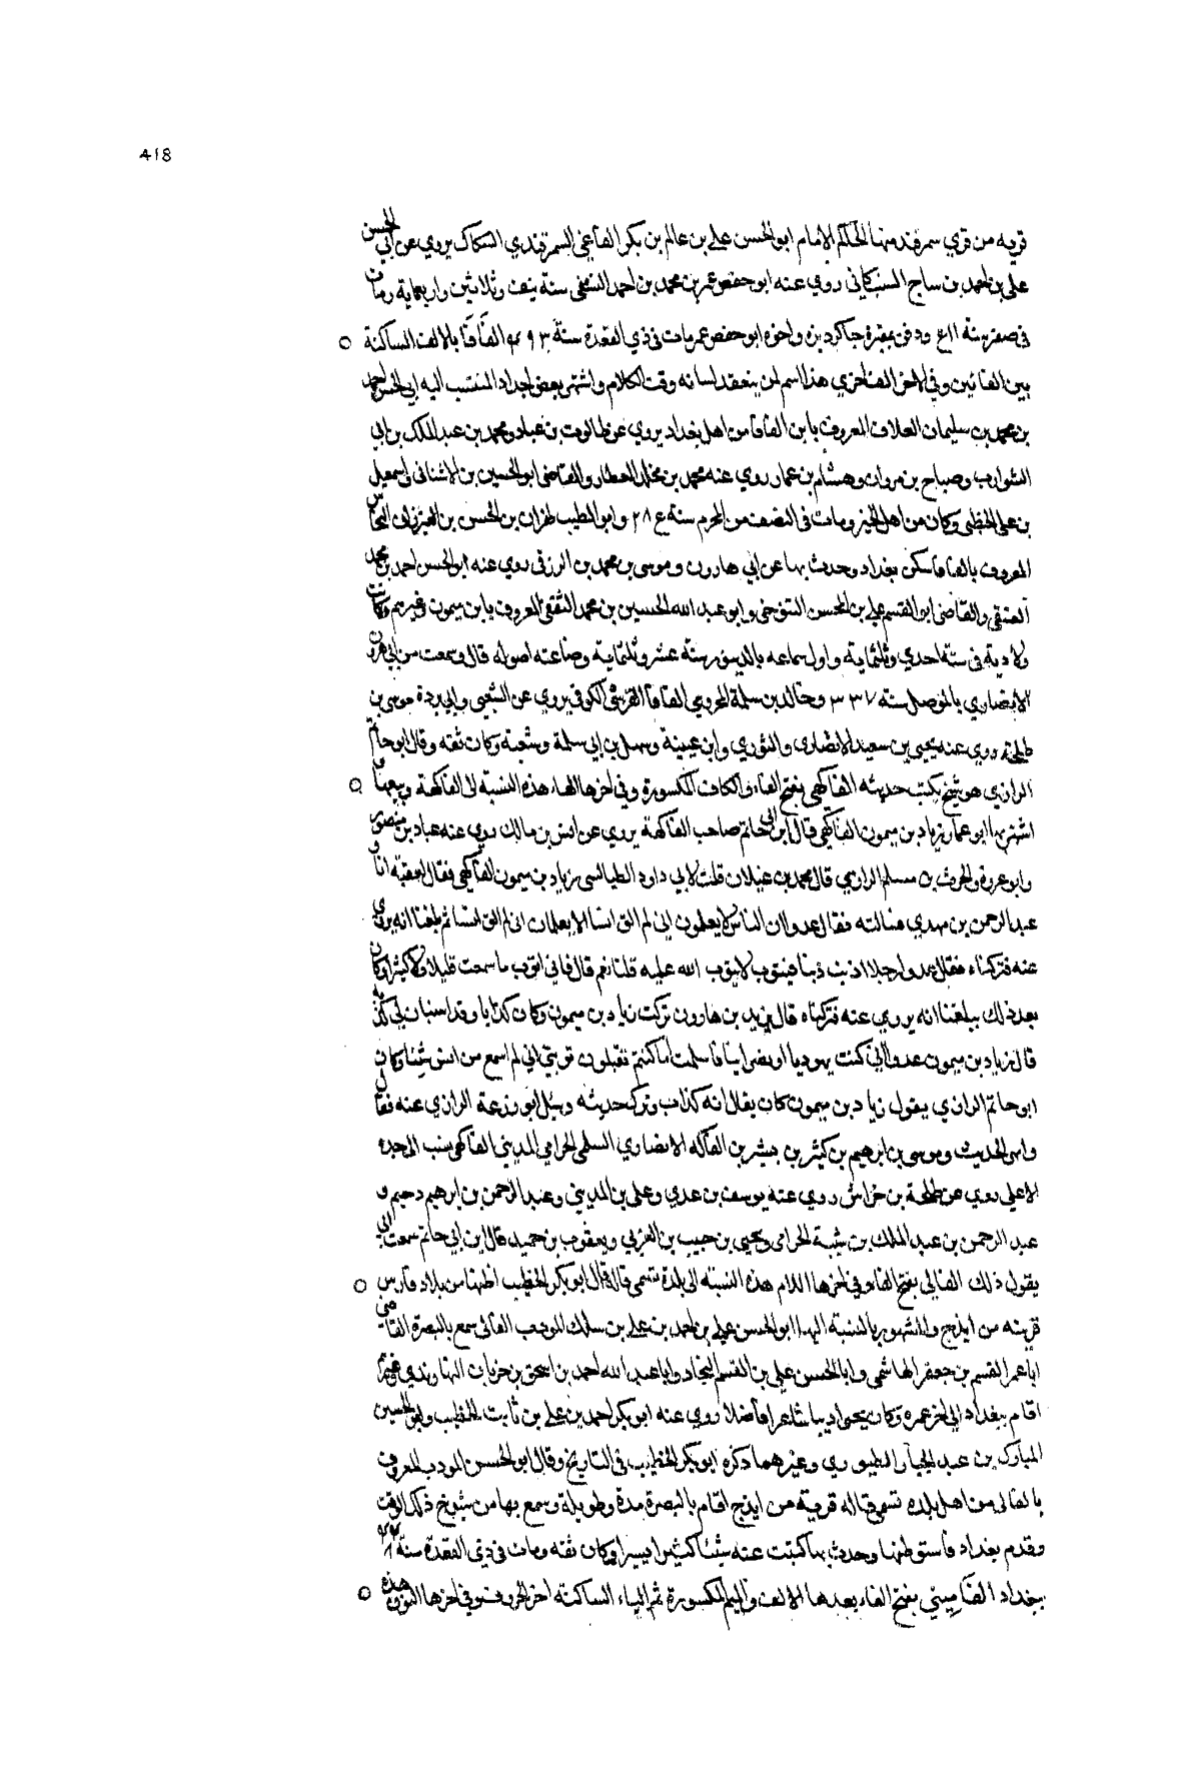 418
قريه من قري سمرقند منها الحاكم الامام ابو الحسن علي بن عالم بن بكر الفاغي السمرقندي السكاك يروي عن ابي الحسن
علي بن احمد بن ساج السنكباثي روي عنه ابو حفص عمر بن محمد بن احمد النسفي سنة نيف وثلاثين واربعماية ومات
في صفر سنة ودفن بمقبرة جاكرديزه واخوه ابو حفص عمر مات في ذي القعدة سنة ٩٣ الفافا بالالف الساكنة
بين الفائين وفي الاخر الف اخري هذا اسم لمن ينعقد لسانه وقت الكلام واشتهر بعض اجداد المنتسب اليه ابي الحسن احمد
بن محمد بن سليمان العلاف المعروف بابن الفافا من اهل بغداد يروي عن طالوت بن عباد ومحمد بن عبد الملك بن ابي
الشوارب وصباح بن مروان وهشام بن عمار روي عنه محمد بن مخلد العطار والقاضي ابو الحسين بن الاشناني واسمعيل
بن علي الخطبي وكان من اهل الخير ومات في النصف من المحرم سنة وابو الطيب طزان بن الحسن بن الفيرزان النحاس
المعروف بالفافا سكن بغداد وحدث بها عن ابي هارون موسي بن محمد بن الزرقي روي عنه ابو الحسن احمد بن محمد
العتيقي والقاضي ابو القسم علي بن المحسن التنوخي وابو عبد الله الحسين بن محمد الثقفي المعروف بابن ميمون وغيرهم وكانت
ولادته في سنة احدي وثلثماية واول سماعه بالدينور سنة عشر وثلثماية وضاعته اصوله قال وسمعت من ابي هرون
الانصاري بالموصل سنة ٣٣٧ وخالد بن سلمة المخزومي الفافا القرشي الكوفي يروي عن الشعبي وابي بردة موسي بن
طلحة روي عنه يحيي بن سعيد الانصاري والثوري وابن عيينة وسهل بن ابي سلمة وشعبة وكان ثقه وقال ابو حاتم
الرازي هو شيخ يكتب حديثه الفاكهي بفتح الفاء والكاف المكسورة وفي اخرها الهاء هذه النسبة الي الفاكهة وبيعها و
اشتهر بها ابو عمار زياد بن ميمون الفاكهي قال ابن ابي حاتم صاحب الفاكهة يروي عن انس بن مالك روي عنه عباد بن منصور
وابو عروة والحرث بن مسلم الرازي قال محمد بن غيلان قلت لابي داود الطيالسي زياد بن ميمون الفاكهي فقال لقيته انا و
عبد الرحمن بن مهدي فسالته فقال عدوا ان الناس لا يعلمون اني لم الق انسا الا يعلمان اني لم الق انسا ثم بلغنا انه يروي
عنه فتركناه فقال عدوا رجلا اذنب ذنبا فيتوب لا يتوب الله عليه قلنا نعم قال فاني اتوب ما سمعت قليلا ولا كثيرا وكان
بعد ذلك يبلغنا انه يروي عنه فتركناه قال يزيد بن هارون تركت زياد بن ميمون وكان كذابا وقد استبان لي كذبه
قال زياد بن ميمون عدوا اني كنت يهوديا او نصرانيا فاسلمت اما كنتم تقبلون توبتي اني لم اسمع من انس شيئا وكان
ابو حاتم الرازي يقول زياد بن ميمون كان يقال انه كذاب وترك حديثه وسئل ابو زرعة الرازي عنه فقال
واهي الحديث وموسي بن ابرهيم بن كثير بن بشير بن الفاكه الانصاري السلمي الحرامي المديني الفاكهي ينسب الي جده
الاعلي روي عن طلحة بن خراش روي عنه يوسف بن عدي وعلي بن المديني وعبد الرحمن بن ابرهيم دحيم و
عبد الرحمن بن عبد الملك بن شيبة الحرامي ويحيي بن حبيب بن العربي ويعقوب بن حميد قال ابن ابي حاتم سمعت ابي
يقول ذلك الفالي بفتح الفاء وفي اخرها اللام هذه النسبة الي بلدة تسمي فالة قال ابو بكر الخطيب اظنها من بلاد فارس
قريبه من ايذج والمشهور بالنسبة اليها ابو الحسن علي بن احمد بن علي بن سلك المودب الفالي سمع بالبصرة القاضي
ابا عمر القسم بن جعفر الهاشمي وابا الحسن علي بن القسم النجاد وابا عبد الله احمد بن اسحق بن خربان النهاوندي وغيرهم
اقام ببغداد الي اخر عمره وكان اديبا شاعرا فاضلا روي عنه ابو بكر احمد بن علي بن ثابت الخطيب وابو الحسين
المبارك بن عبد الجبار الطيوري وغيرهما ذكره ابو بكر الخطيب في التاريخ وقال ابو الحسن المودب المعروف
بالفالي من اهل بلده تسمي فاله قريبة من ايذج اقام بالبصرة مدة طويلة وسمع بها من شيوخ ذلك الوقت
وقدم بغداد فاستوطنها وحدث بها كتبت عنه شيئا كثيرا يسيرا وكان ثقه ومات في ذي القعدة سنة
ببغداد الفاميني بفتح الفاء بعدها الالف والميم المكسورة ثم الياء الساكنه اخر الحروف وفي اخرها النون هذه